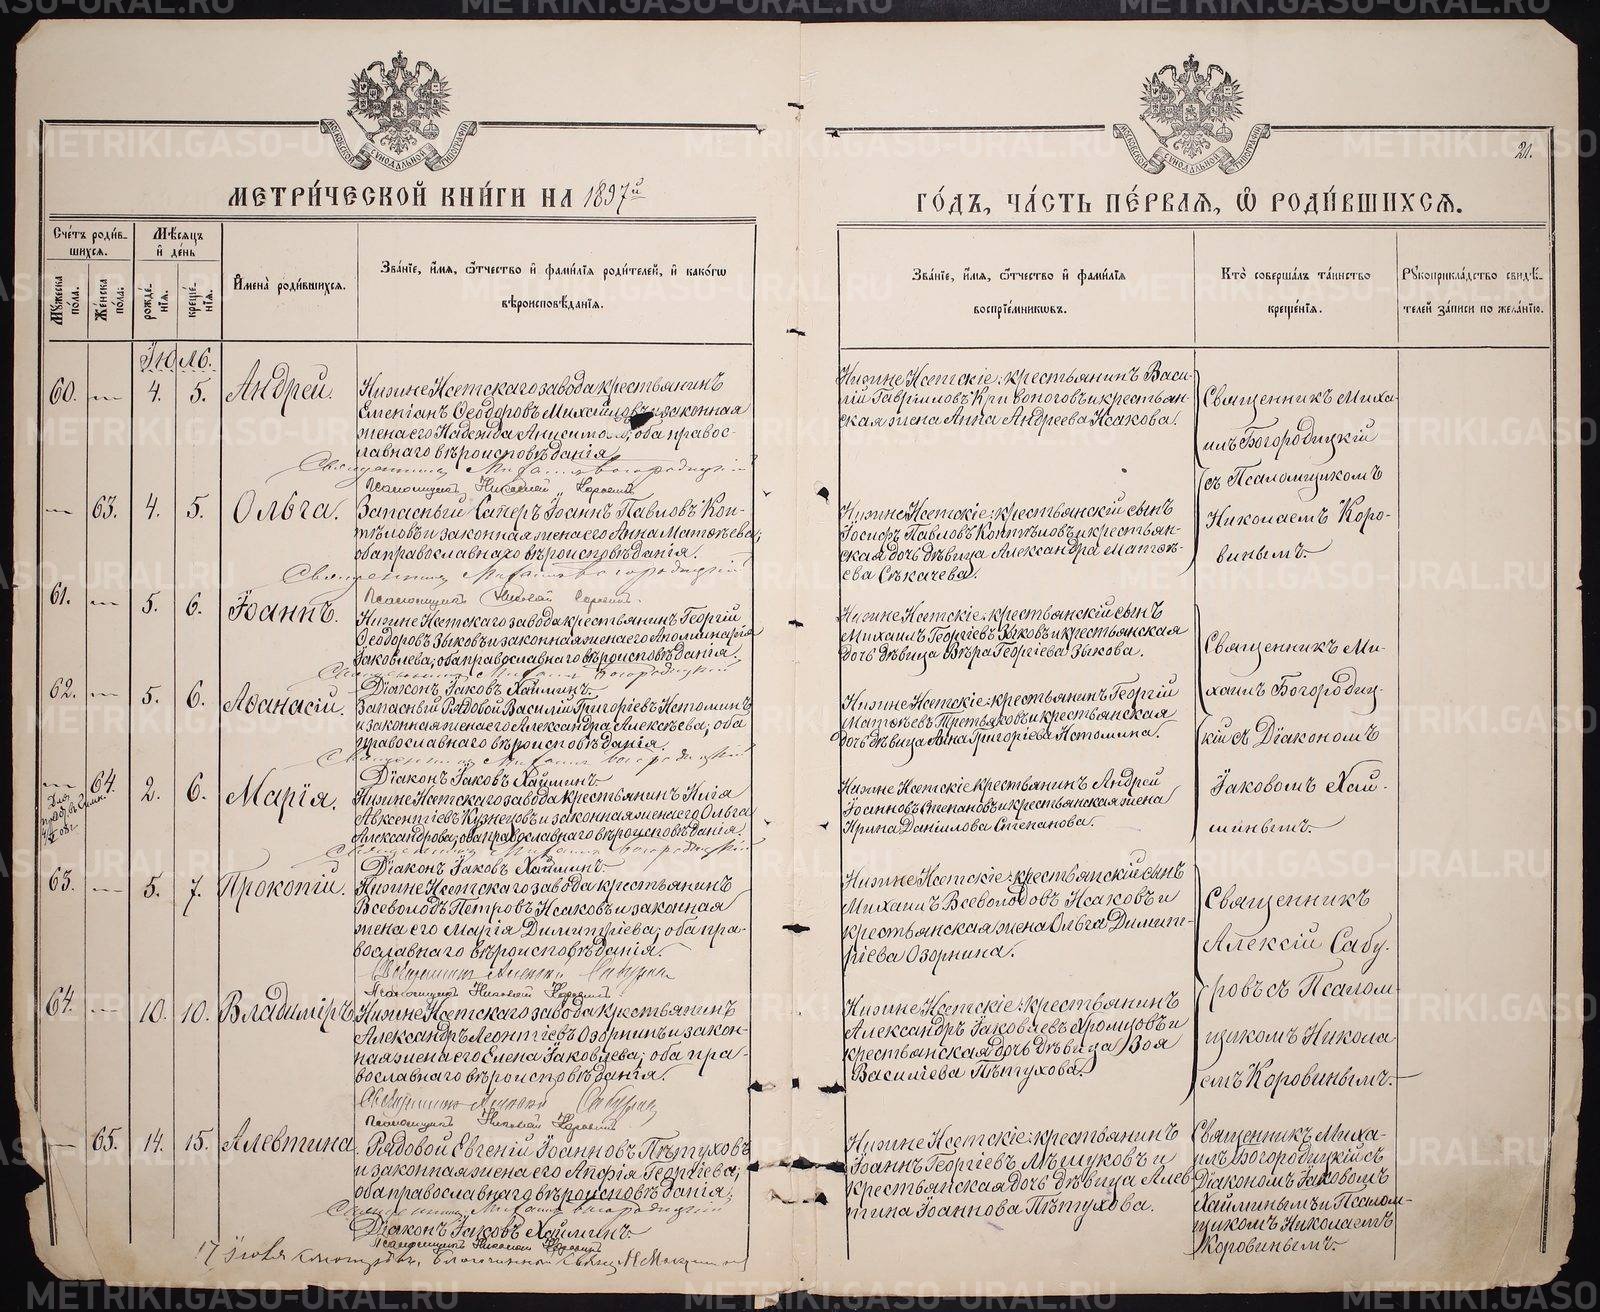 МЕТРИ́ЧЕСКОЙ КНИ́ГИ НА 1897й
ГО́ДЪ, ЧА́СТЬ ПЕ́РВАЯ, Ѡ РОДИ́ВШИХСЯ.
21.
Сче́тъ роди́вшихся.
Мꙋ́жеска по́ла.
Же́нска по́ла.
Мѣ́сяцъ и де́нь
рожде́нїя.
креще́нїя.
И҆мена̀ роди́вшихся.
Зва́нїе, и҆́мя, ѻ҆́тчество и҆ фами́лїя роди́телей, и҆ како́гѡ
вѣроисповѣ́данїя.
Зва́нїе, и҆́мя, ѻ҆́тчество и҆ фами́лїя
воспрїе́мникѡвъ.
Кто̀ соверша́лъ та́инство
креще́нїя.
Рꙋкоприкла́дство свидѣ́-
телей за́писи по жела́нїю.
Іюль.
60. — 4. 5. Андрей.
Нижне Исетскаго завода крестьянинъ
Емеліанъ Ѳеодоровъ Михайловъ и законная
жена его Надежда Анисимова, оба правос-
лавнаго вѣроисповѣданія.
Священникъ Михаилъ Богородицкій
Псаломщикъ Николай Коровинъ
Нижне Исетскіе: крестьянинъ Васи-
лій Гавріиловъ Кривоноговъ и крестьян-
ская жена Анна Андреева Исакова.
Священникъ Миха-
илъ Богородицкій
съ Псаломщикомъ
Николаемъ Коро-
винымъ.
— 63. 4. 5. Ольга.
Запасный Саперъ Іоаннъ Павловъ Коп-
тѣловъ и законная жена его Анна Матѳѣева,
оба православнаго вѣроисповѣданія.
Священникъ Михаилъ Богородицкій
Псаломщикъ Николай Коровинъ.
Нижне Исетскіе: крестьянскій сынъ
Іосифъ Павловъ Коптѣловъ и крестьян-
ская дочь дѣвица Александра Матѳѣ-
ева Сѣкачева.
61. — 5. 6. Іоаннъ.
Нижне Исетскаго завода крестьянинъ Георгій
Ѳеодоровъ Зыковъ и законная жена его Аполлинарія
Іаковлева, оба православнаго вѣроисповѣданія.
Священникъ Михаилъ Богородицкій
Діаконъ Іаковъ Хайминъ.
Нижне Исетскіе: крестьянскій сынъ
Михаилъ Георгіевъ Зыковъ и крестьянская
дочь дѣвица Вѣра Георгіева Зыкова.
Священникъ Ми-
хаилъ Богородиц-
кій съ Діакономъ
Іаковомъ Хай-
минымъ.
62. — 5. 6. Аѳанасій.
Запасный Рядовой Василій Григоріевъ Истоминъ
и законная жена его Александра Алексѣева, оба
православнаго вѣроисповѣданія.
Священникъ Михаилъ Богородицкій
Діаконъ Іаковъ Хайминъ.
Нижне Исетскіе: крестьянинъ Георгій
Матѳѣевъ Третьяковъ и крестьянская
дочь дѣвица Анна Григоріева Истомина.
— 64. 2. 6. Марія.
Нижне Исетскаго завода крестьянинъ Илія
Авксентіевъ Кузнецовъ и законная жена его Ольга
Александрова, оба православнаго вѣроисповѣданія.
Священникъ Михаилъ Богородицкій
Діаконъ Іаковъ Хайминъ.
Нижне Исетскіе: крестьянинъ Андрей
Іоанновъ Степановъ и крестьянская жена
Ирина Даніилова Степанова.
63. — 5. 7. Прокопій.
Нижне Исетскаго завода крестьянинъ
Всеволодъ Петровъ Исаковъ и законная
жена его Марія Димитріева, оба пра-
вославнаго вѣроисповѣданія.
Священникъ Алексій Сабуровъ
Псаломщикъ Николай Коровинъ.
Нижне Исетскіе: крестьянскій сынъ
Михаилъ Всеволодовъ Исаковъ и
крестьянская жена Ольга Димит-
ріева Озорнина.
Священникъ
Алексій Сабу-
ровъ съ Псалом-
щикомъ Никола-
емъ Коровинымъ.
64. — 10. 10. Владиміръ.
Нижне Исетскаго завода крестьянинъ
Александръ Леонтіевъ Озорнинъ и закон-
ная жена его Елена Іаковлева, оба пра-
вославнаго вѣроисповѣданія.
Священникъ Алексій Сабуровъ
Псаломщикъ Николай Коровинъ.
Нижне Исетскіе: крестьянинъ
Александръ Іаковлевъ Хромцовъ и
крестьянская дочь дѣвица Зоя
Василіева Пѣтухова.
— 65. 14. 15. Алевтина.
Рядовой Евгеній Іоанновъ Пѣтуховъ
и законная жена его Апфія Георгіева,
оба православнаго вѣроисповѣданія.
Священникъ Михаилъ Богородицкій
Діаконъ Іаковъ Хайминъ.
Псаломщикъ Николай Коровинъ
Нижне Исетскіе: крестьянинъ
Іоаннъ Георгіевъ Мѣшуковъ и
крестьянская дочь дѣвица Алев-
тина Іоаннова Пѣтухова.
Священникъ Миха-
илъ Богородицкій съ
Діакономъ Іаковомъ
Хайминымъ и Псалом-
щикомъ Николаемъ
Коровинымъ.
17 Іюля
METRIKI.GASO-URAL.RU